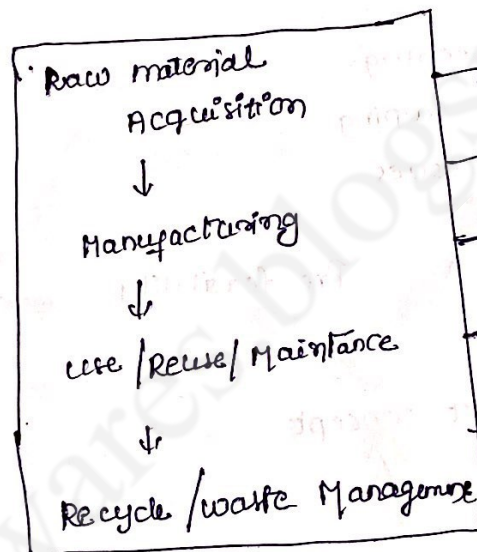 Raw material
Acquisition
↓
Manufacturing
↓
Use / Reuse / Maintance
↓
Recycle / waste Manageme